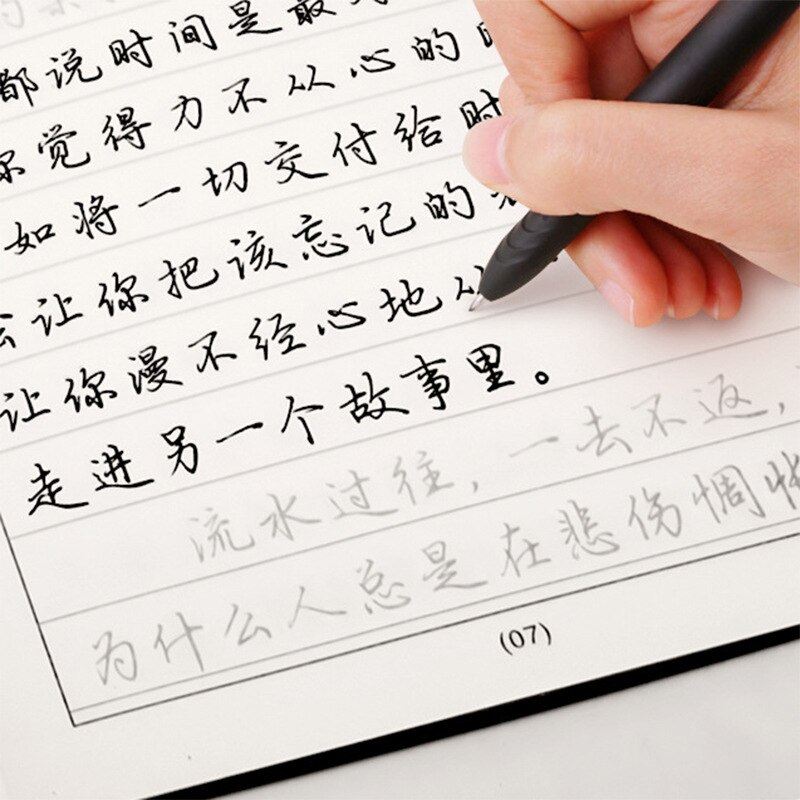 都说时间是最
你觉得力不从心的时
如将一切交付给时
会让你把该忘记的
让你漫不经心地从
走进另一个故事里。
流水过往，一去不返，
为什么人总是在悲伤惆怅
(07)